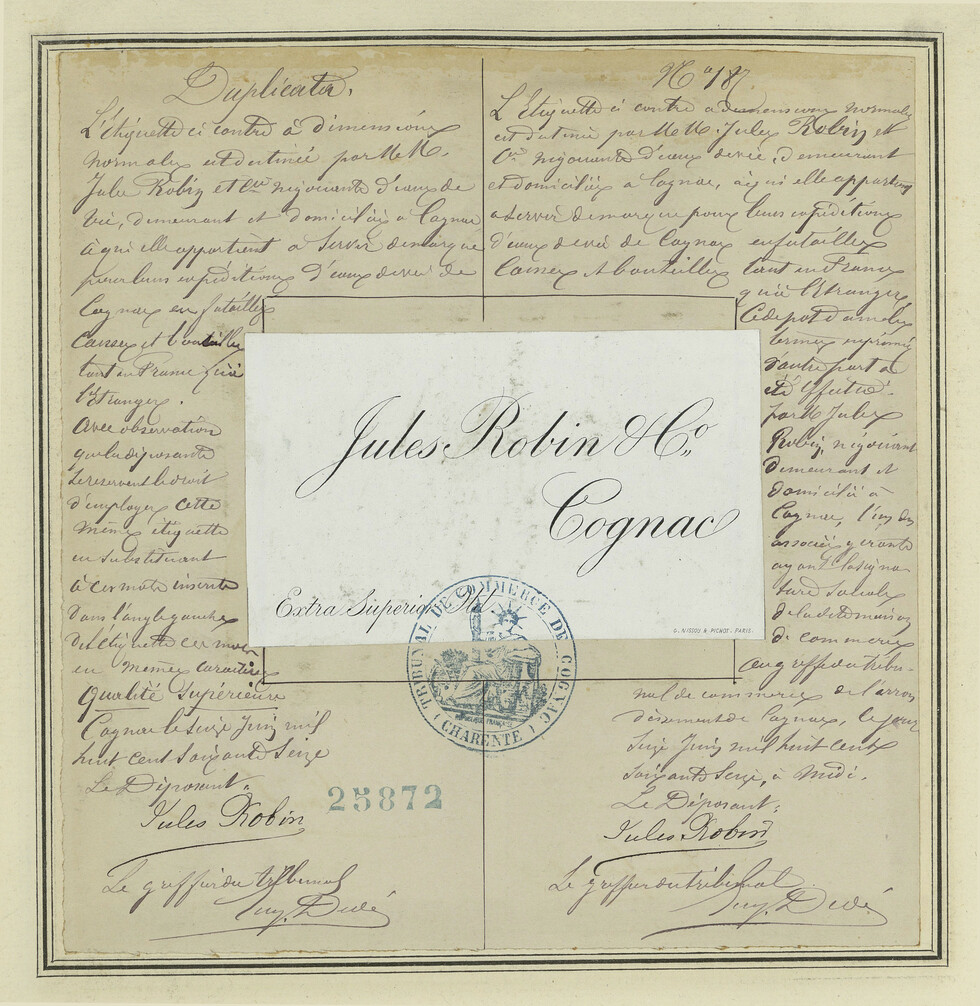 Duplicata.
L'étiquette ci contre à dimensions
normales est destinée par M.M.
Jules Robin et Cie négociants d'eaux de
vie, demeurant et domiciliés à Cognac
à qui elle appartient à servir de marque
pour leurs expéditions d'eaux de vie de
Cognac en futailles
Caisses et bouteilles
tant en France qu'à
l'Etranger.
Avec observation
que les déposants
se réservent le droit
d'employer cette
même étiquette
en substituant
à ces mots inscrits
dans l'angle gauche
de l'étiquette ces mots
en mêmes caractères
Qualité Supérieure
Cognac le seize Juin mil
huit cent soixante seize
Le Déposant.
Jules Robin
Le greffier du tribunal
25872
No 187.
L'Etiquette ci contre a dimensions normales
est destinée par M.M. Jules Robin et
Cie négociants d'eaux de vie, demeurant
et domiciliés à Cognac, à qui elle appartient
à servir de marque pour leurs expéditions
d'eaux de vie de Cognac en futailles
Caisses et bouteilles tant en France
qu'à l'Etranger,
Ce dépôt dans les
termes exprimés
d'autre part a
été effectué
par M Jules
Robin, négociant
demeurant et
domicilié à
Cognac, l'un des
associés gérants
ayant la signa-
ture sociale
de la dite maison
de commerce
au greffe du tribu-
nal de commerce de l'arron
dissement de Cognac, le jour
Seize Juin mil huit cent
soixante Seize, à Midi.
Le Déposant.
Jules Robin
Le greffier du tribunal
Jules Robin & Co.,
Cognac
Extra Superior
G. NISSOU & PICHOT - PARIS
TRIBUNAL DE COMMERCE DE COGNAC
(CHARENTE)